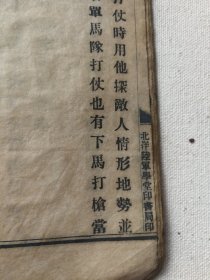 打仗時用他探敵人情形地勢並
單馬隊打仗也有下馬打槍當
北洋陸軍學堂印書局印